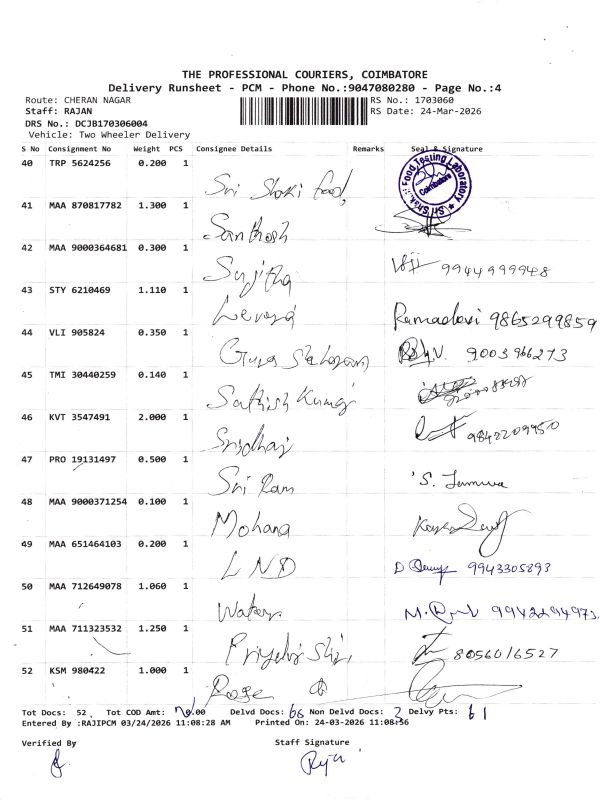 THE PROFESSIONAL COURIERS, COIMBATORE
Delivery Runsheet - PCM - Phone No.:9047080280 - Page No.:4
Route: CHERAN NAGAR RS No.: 1703060
Staff: RAJAN RS Date: 24-Mar-2026
DRS No.: DCJB170306004
Vehicle: Two Wheeler Delivery
S No Consignment No Weight PCS Consignee Details Remarks Seal & Signature
40 TRP 5624256 0.200 1 Sri food, Food Testing Laboratory Coimbatore
41 MAA 870817782 1.300 1 Santhosh
42 MAA 9000364681 0.300 1 Sujitha 9944999948
43 STY 6210469 1.110 1 Ramadevi 9865299859
44 VLI 905824 0.350 1 9003966273
45 TMI 30440259 0.140 1 Sathish Kumar
46 KVT 3547491 2.000 1 Sridhar 9842209950
47 PRO 19131497 0.500 1 Sri Ram S.
48 MAA 9000371254 0.100 1 Mohana
49 MAA 651464103 0.200 1 LND D 9943305893
50 MAA 712649078 1.060 1 Water M.
51 MAA 711323532 1.250 1 8056016527
52 KSM 980422 1.000 1 Rose
Tot Docs: 52 Tot COD Amt: 0.00 Delvd Docs: Non Delvd Docs: Delvy Pts: 61
Entered By :RAJIPCM 03/24/2026 11:08:28 AM Printed On: 24-03-2026 11:08:36
Verified By Staff Signature